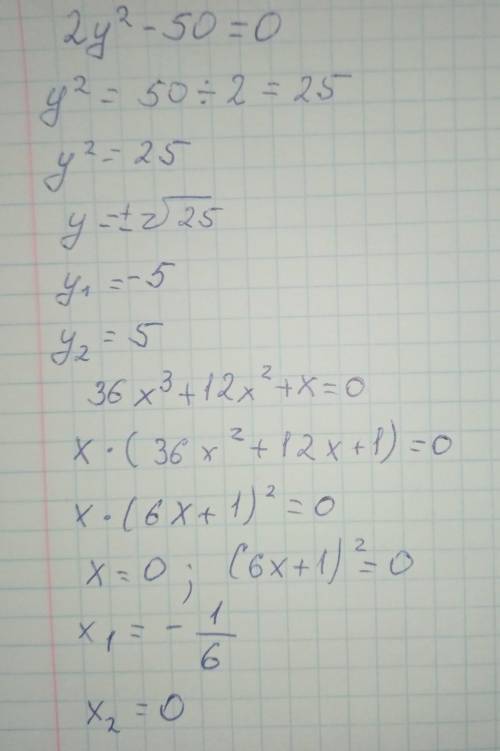 2y² - 50 = 0
y² = 50 ÷ 2 = 25
y² = 25
y = ± √25
y₁ = -5
y₂ = 5
36x³ + 12x² + x = 0
x · (36x² + 12x + 1) = 0
x · (6x + 1)² = 0
x = 0 ; (6x + 1)² = 0
x₁ = - 1/6
x₂ = 0